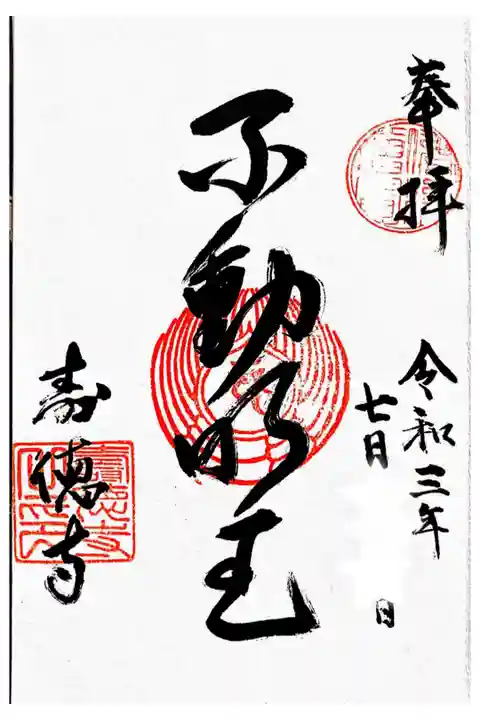 奉拝
令和三年
七日
日
不動明王
寿徳寺